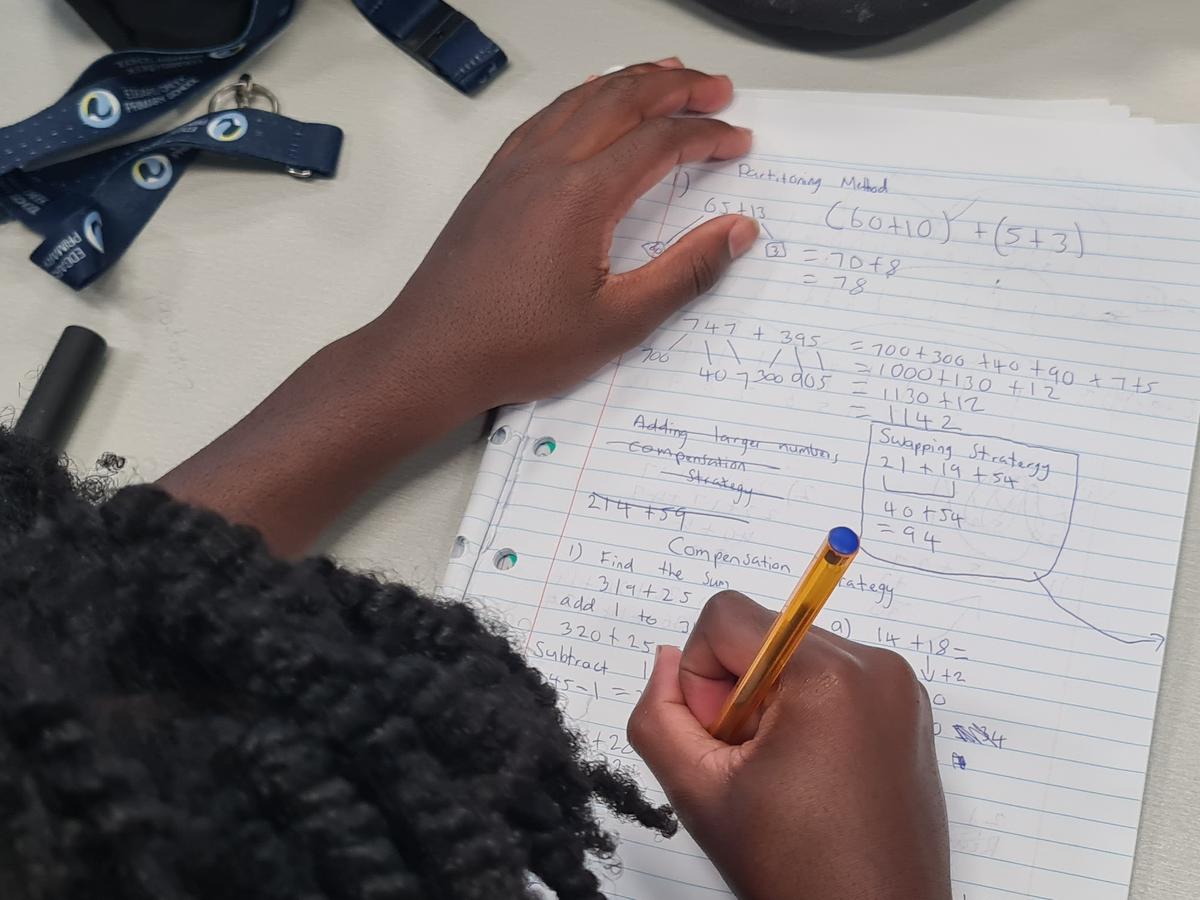 EDGAR
PRIMARY SCHOOL
EDGAR
PRIMARY
Partitioning Method
1)
65+13
(60+10) + (5+3)
3
= 70+8
= 78
747 + 395
= 700+300 +40 +90 +7+5
700
40 7 300 90 5
= 1000+130 +12
= 1130 +12
= 1142
Adding larger numbers
Compensation
Strategy
274 +59
Swapping Stratergy
21 + 19 + 54
40 + 54
= 94
Compensation
1) Find the sum
319+25
add 1 to
320 + 25
Subtract 1
45-1 =
a) 14 +18=
↓+2
0
34